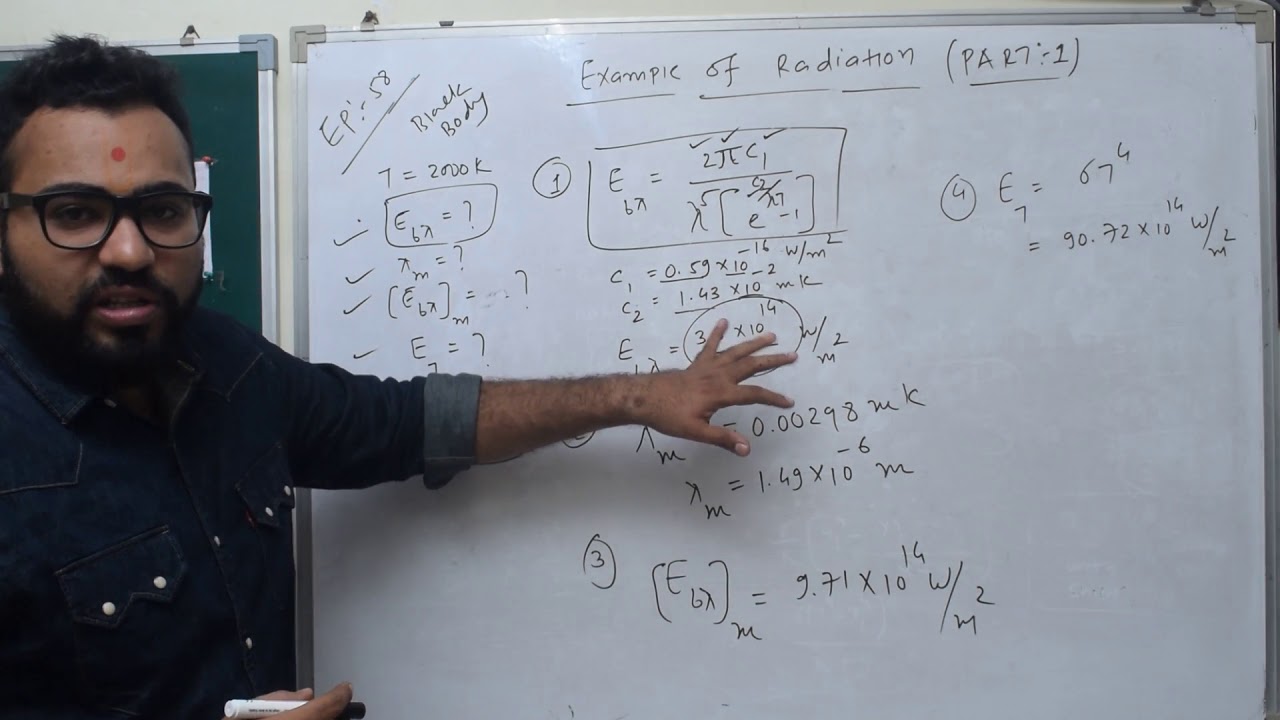 Example of Radiation (PART:-1)
EP:-58
Black
Body
T = 2000K
E bλ = ?
λ m = ?
[E bλ] m = ?
E T = ?
① E bλ = 2πC₁ / λ⁵ [e^(C₂/λT) -1]
C₁ = 0.59×10⁻¹⁶ W/m²
C₂ = 1.43×10⁻² mK
E bλ = 3 ×10¹⁴ W/m²
λ m = 0.00298 mK
λ m = 1.49×10⁻⁶ m
③ [E bλ] m = 9.71×10¹⁴ W/m²
④ E T = σT⁴
= 90.72×10¹⁴ W/m²